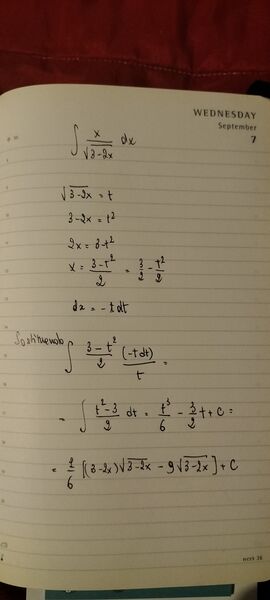 WEDNESDAY
September
7
∫ x/√(3-2x) dx
√(3-2x) = t
3-2x = t²
2x = 3-t²
x = (3-t²)/2 = 3/2 - t²/2
dx = -t dt
Sostituendo ∫ (3-t²)/2 (-t dt)/t =
= ∫ (t²-3)/2 dt = t³/6 - 3/2 t + C =
= 1/6 [(3-2x)√(3-2x) - 9√(3-2x)] + C